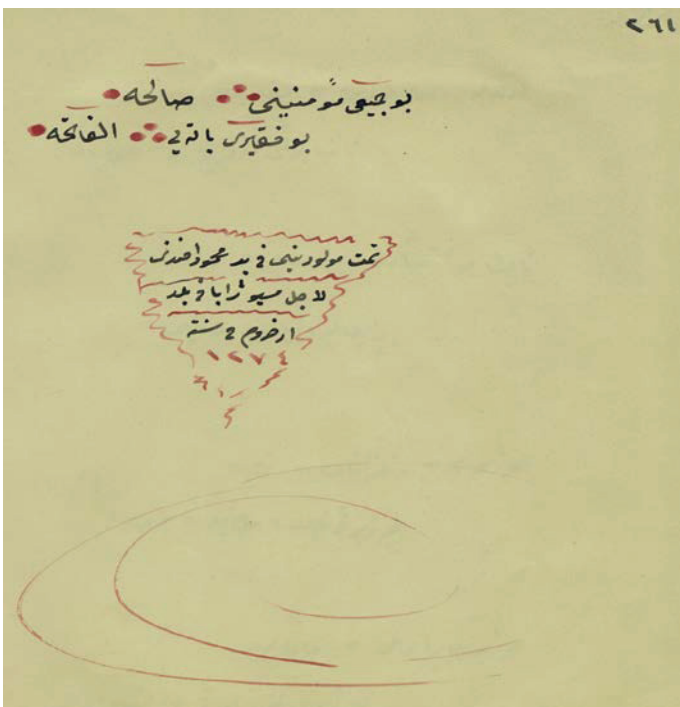 ٢٦١
بو جميعى مؤمنينى صالحه
بو فقيرى باته يى الفاتحه
تمت مولود نبى فى يد محمود افندى
لاجل مسيو ژابا فى بلد
ارضروم فى سنة
١٢٧٤